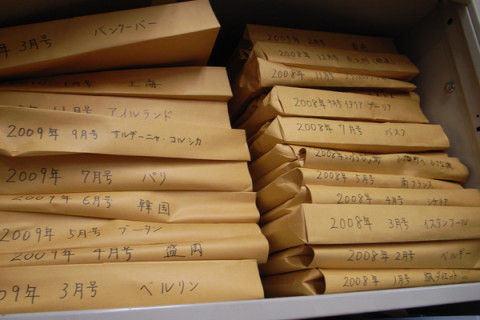 年 3月号 バンクーバー
上海
11月号 アイルランド
2009年 9月号 サルデーニャ・コルシカ
2009年 7月号 パリ
年6月号 韓国
2009年 5月号 ブータン
2009年 4月号 盛岡
2009年 3月号 ベルリン
2008年 12月号
2008年 11月号
2008年
2008年 7月号 バスク
2008年 5月号 南フランス
2008年 4月号 シチリア
2008年 3月号 イスタンブール
2008年 2月号 ベルギー
2008年 1月号